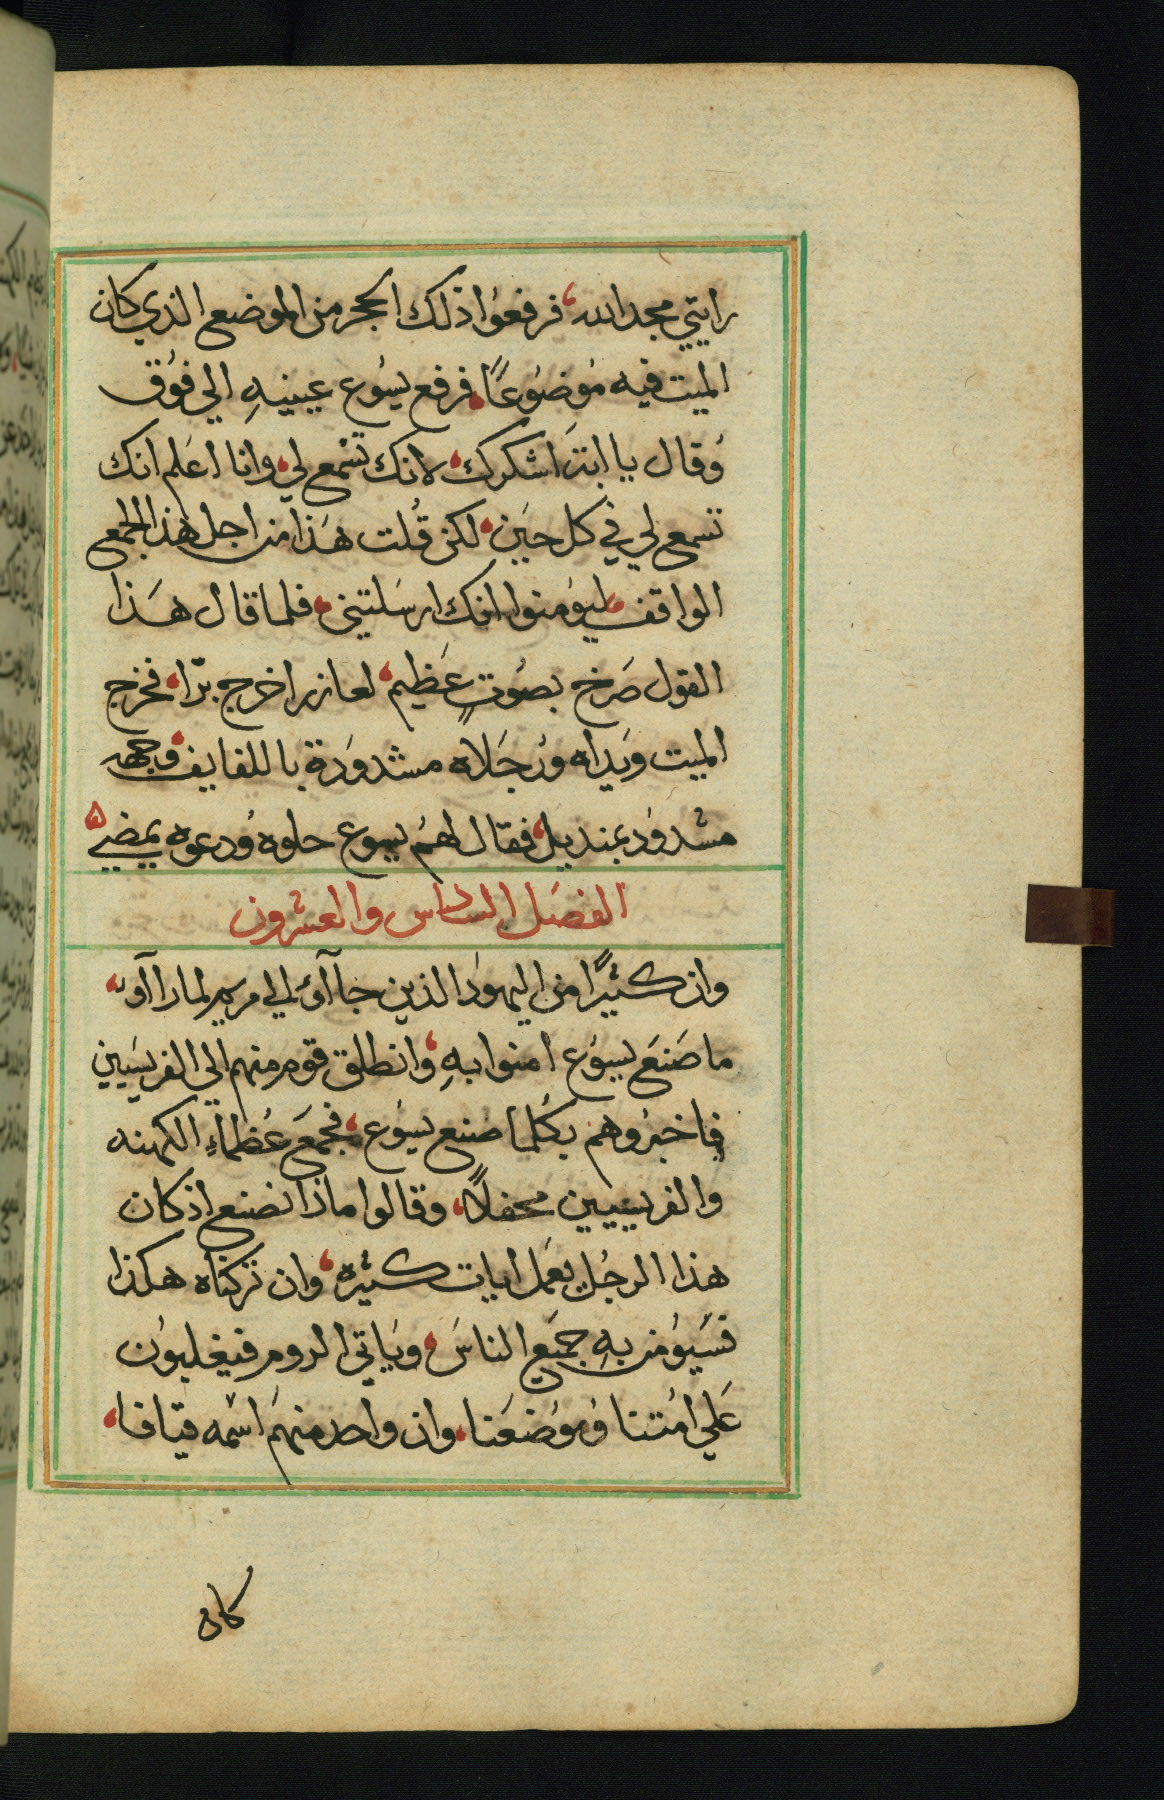 رايتي مجد الله، فرفعوا ذلك الحجر من الموضع الذي كان
الميت فيه موضوعًا، فرفع يسُوع عينيهِ الي فوُق
وُقال يا ابتِ اشكرك، لانك تسمع لي، وانا اعَلم انك
تسمع لي في كل حيَن، لكن قُلت هَذا من اجل هذا الجمع
الواقف، ليوُمنوا انك ارسَلتني، فلما قال هَذا
القول صَرخ بصوُتٍ عَظيم، لعازر اخرج برّا، فخرج
الميت وَيداه وَرُجَلاه مشدودَة باللفايف، وجهه
مشدوُد بمنديل، فقال لهمُ يسوع حلوه وُدعوه يمضي ۞
الفصَل السادس والعشرون
وان كثيرًا من اليهود الذين جاآوُ الي مريم لما راآو،
ما صَنعَ يسوُع امنوا بهِ، وانطلق قوم منهم الي الفريسَيين
فاخبرُوهم بكُلما صنع يسوُع، فجمَعَ عُظماءِ الكهنه
والفريسيين محفلاً، وقالوا ماذا نصنع اذ كان
هذا الرجُل يعَمل ايات كثيره، وان تركناه هكذا
فسَيوُمن بهِ جميَع الناسَ، ويَاتي الروم فيغلبوُن
عَلي امُتنا وُموُضعَنا، وان واحد منهمَ اسُمه قيافا،
كان